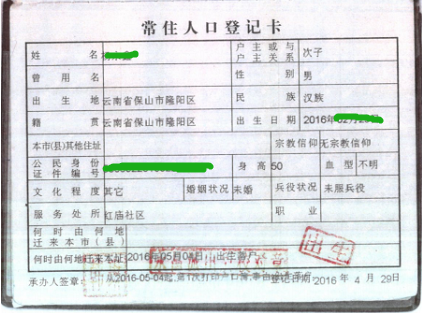 常住人口登记卡
姓 名
户主或与户主关系 次子
曾用名
性 别 男
出生地 云南省保山市隆阳区
民 族 汉族
籍 贯 云南省保山市隆阳区
出生日期 2016年
本市(县)其他住址
宗教信仰 无宗教信仰
公民身份证件编号
身高 50
血型 不明
文化程度 其它
婚姻状况 未婚
兵役状况 未服兵役
服务处所 红庙社区
职 业
何时由何地迁来本市(县)
何时由何地迁来本址 2016年05月04日,出生
出生
承办人签章:
登记日期 2016年 4月 29日